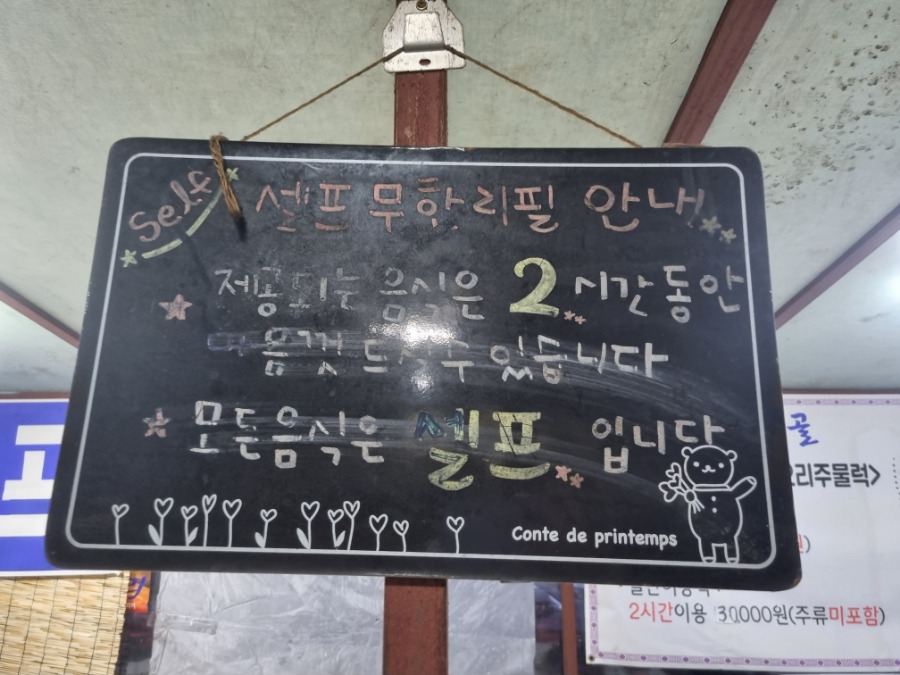 Self 셀프 무한리필 안내
제공되는 음식은 2시간동안
음껏 드실수 있습니다
모든음식은 셀프 입니다
Conte de printemps
골
오리주물럭>
2시간이용 30,000원(주류미포함)